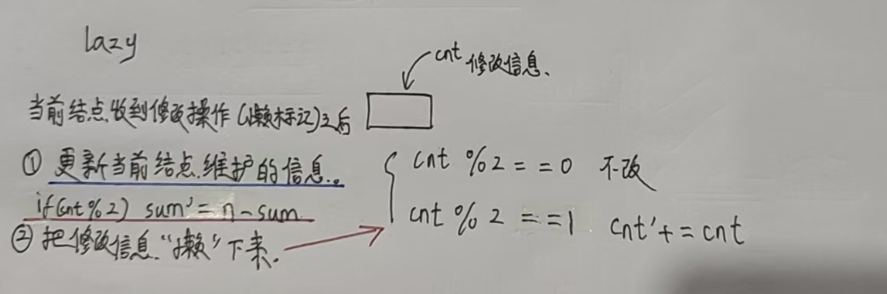 lazy
cnt 修改信息.
当前结点收到修改操作(懒标记)之后
① 更新当前结点维护的信息。
if(cnt%2) sum' = n-sum
② 把修改信息"懒"下来.
cnt % 2 == 0 不改
cnt % 2 == 1 cnt' += cnt